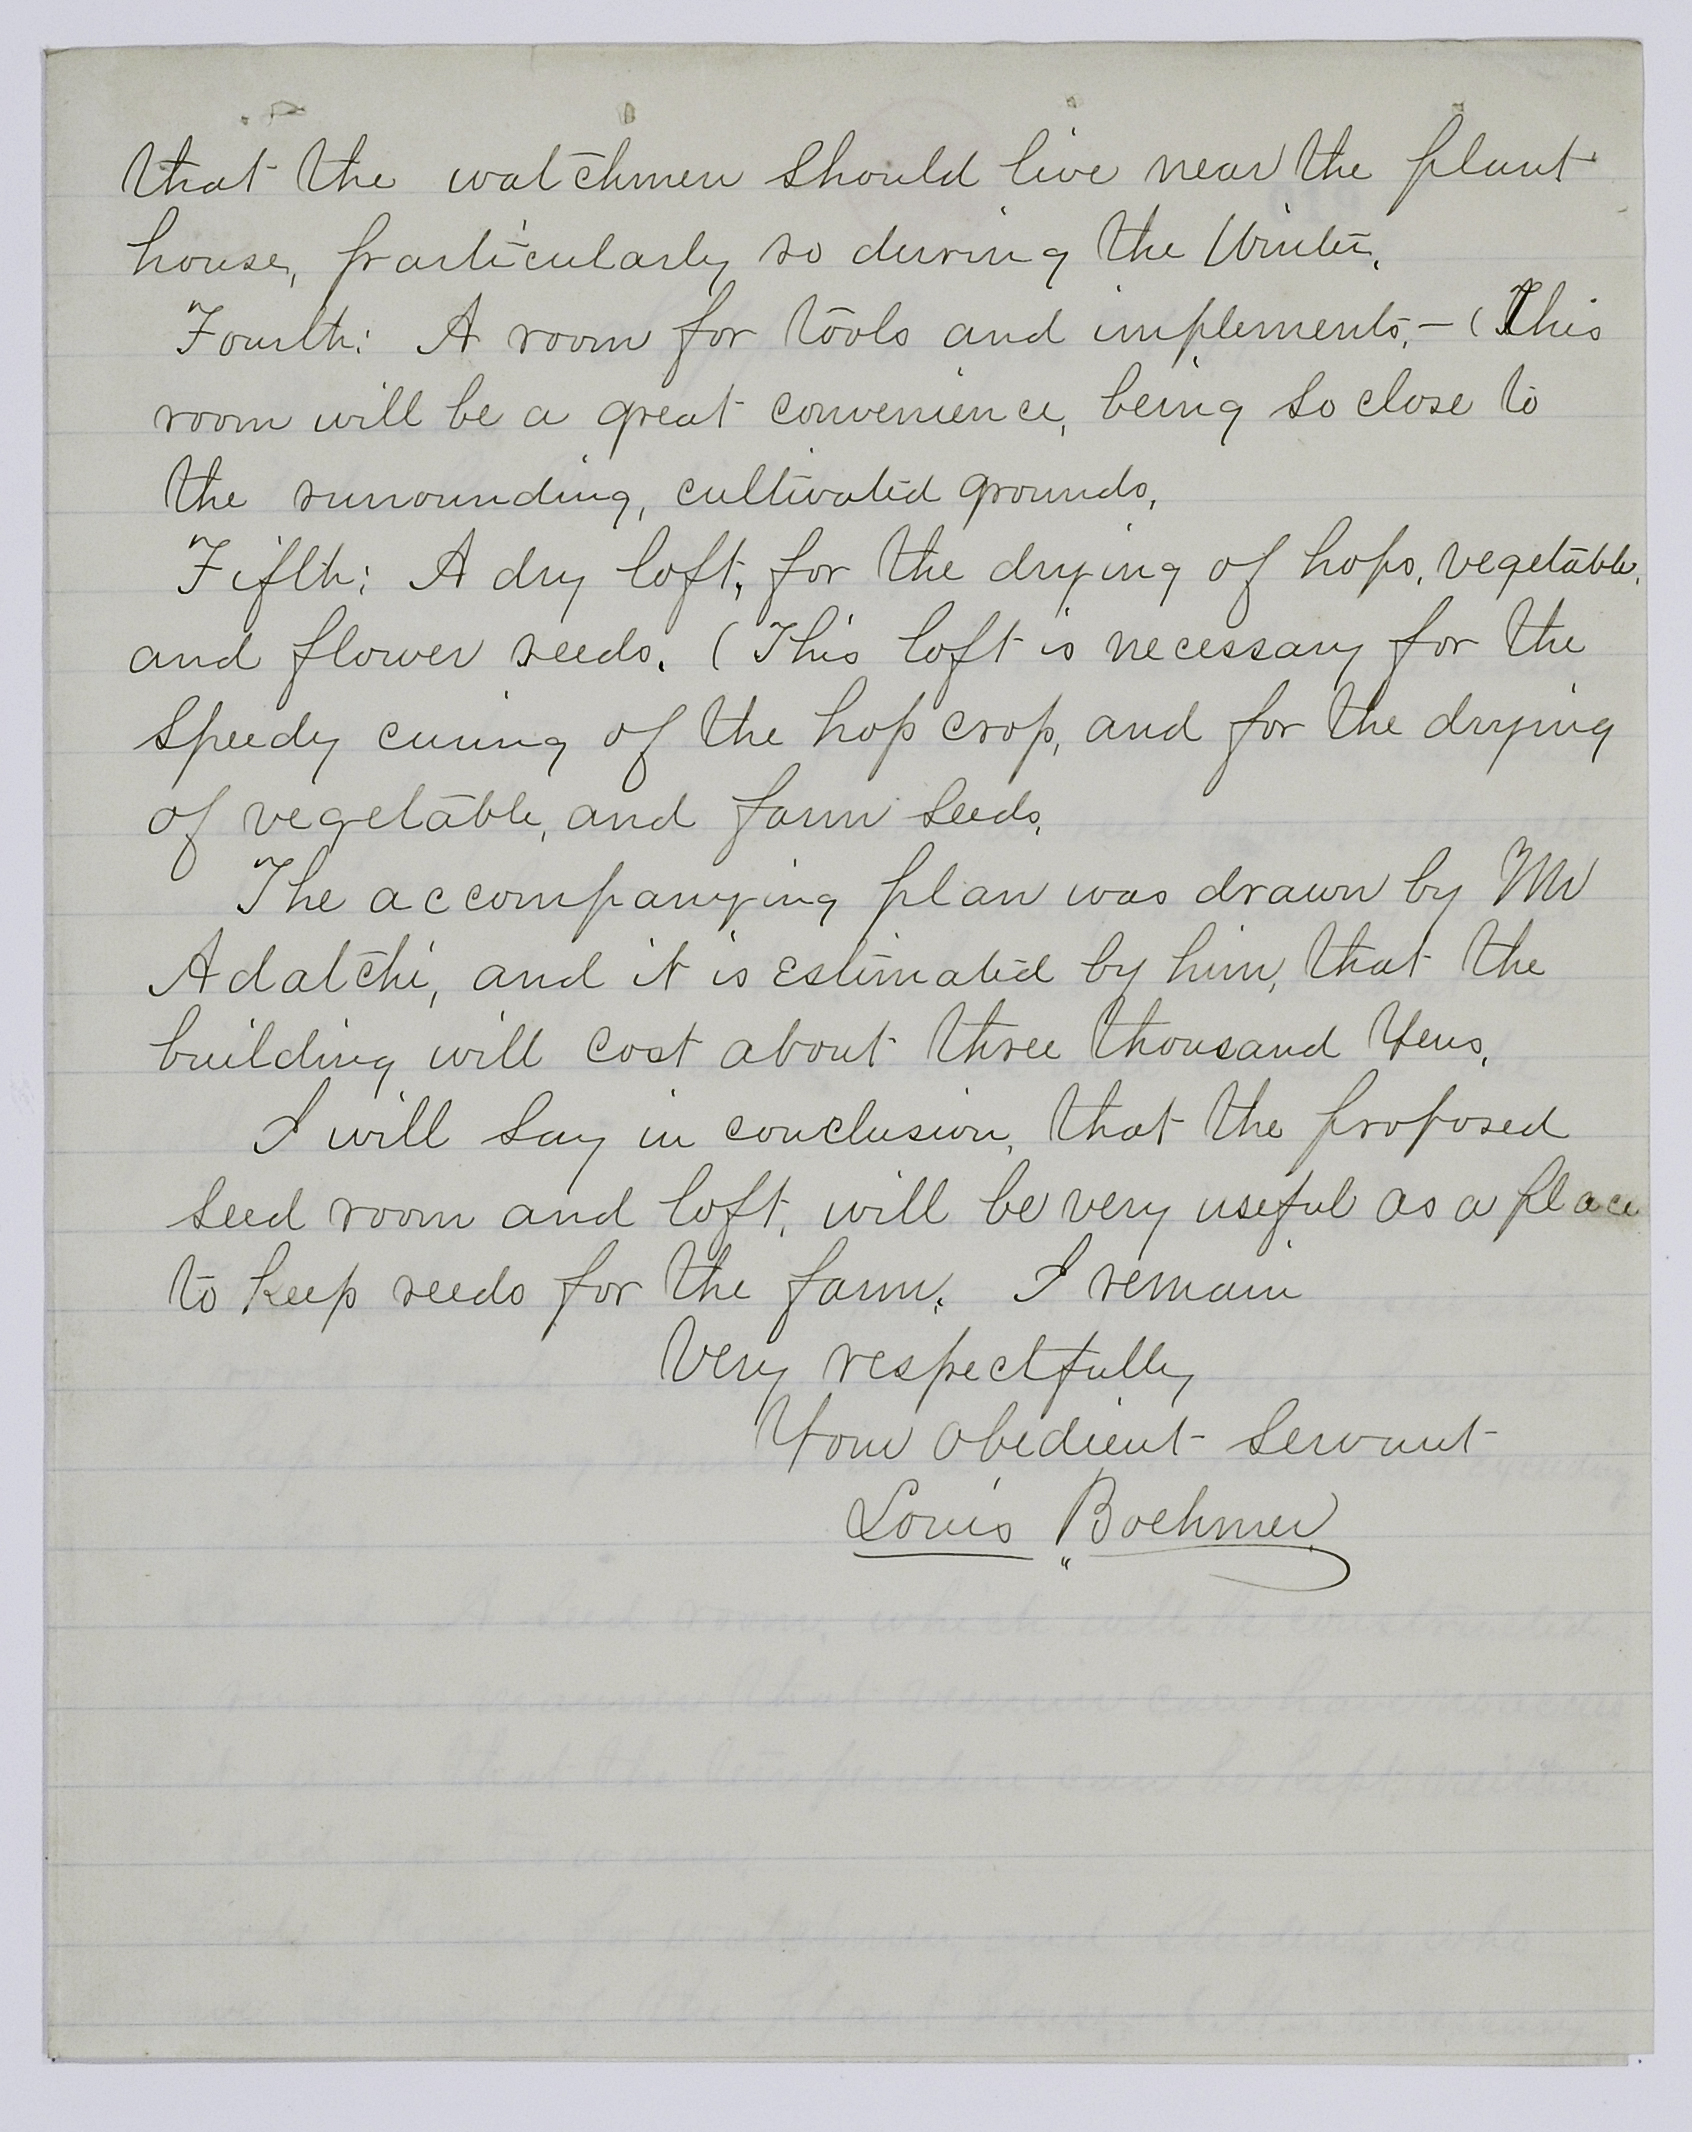 that the watchmen should live near the plant
house, particularly so during the Winter.
Fourth: A room for tools and implements,— (This
room will be a great convenience, being so close to
the surrounding, cultivated grounds.
Fifth: A dry loft, for the drying of hops, vegetable,
and flower seeds. (This loft is necessary for the
speedy curing of the hop crop, and for the drying
of vegetable, and farm seeds.
The accompanying plan was drawn by Mr
Adatchi, and it is estimated by him, that the
building will cost about three thousand Yens.
I will say in conclusion, that the proposed
seed room and loft, will be very useful as a place
to keep seeds for the farm. I remain
Very respectfully
Your obedient servant
Louis Boehmer